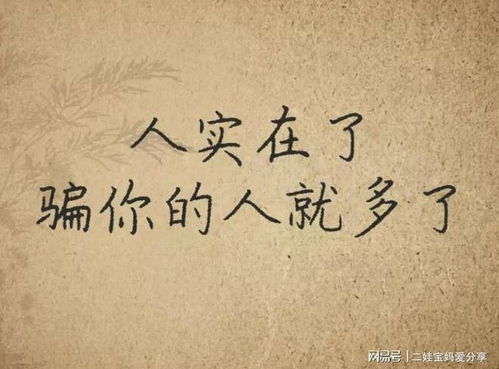 人实在了
骗你的人就多了
网易号 | 二娃宝妈爱分享